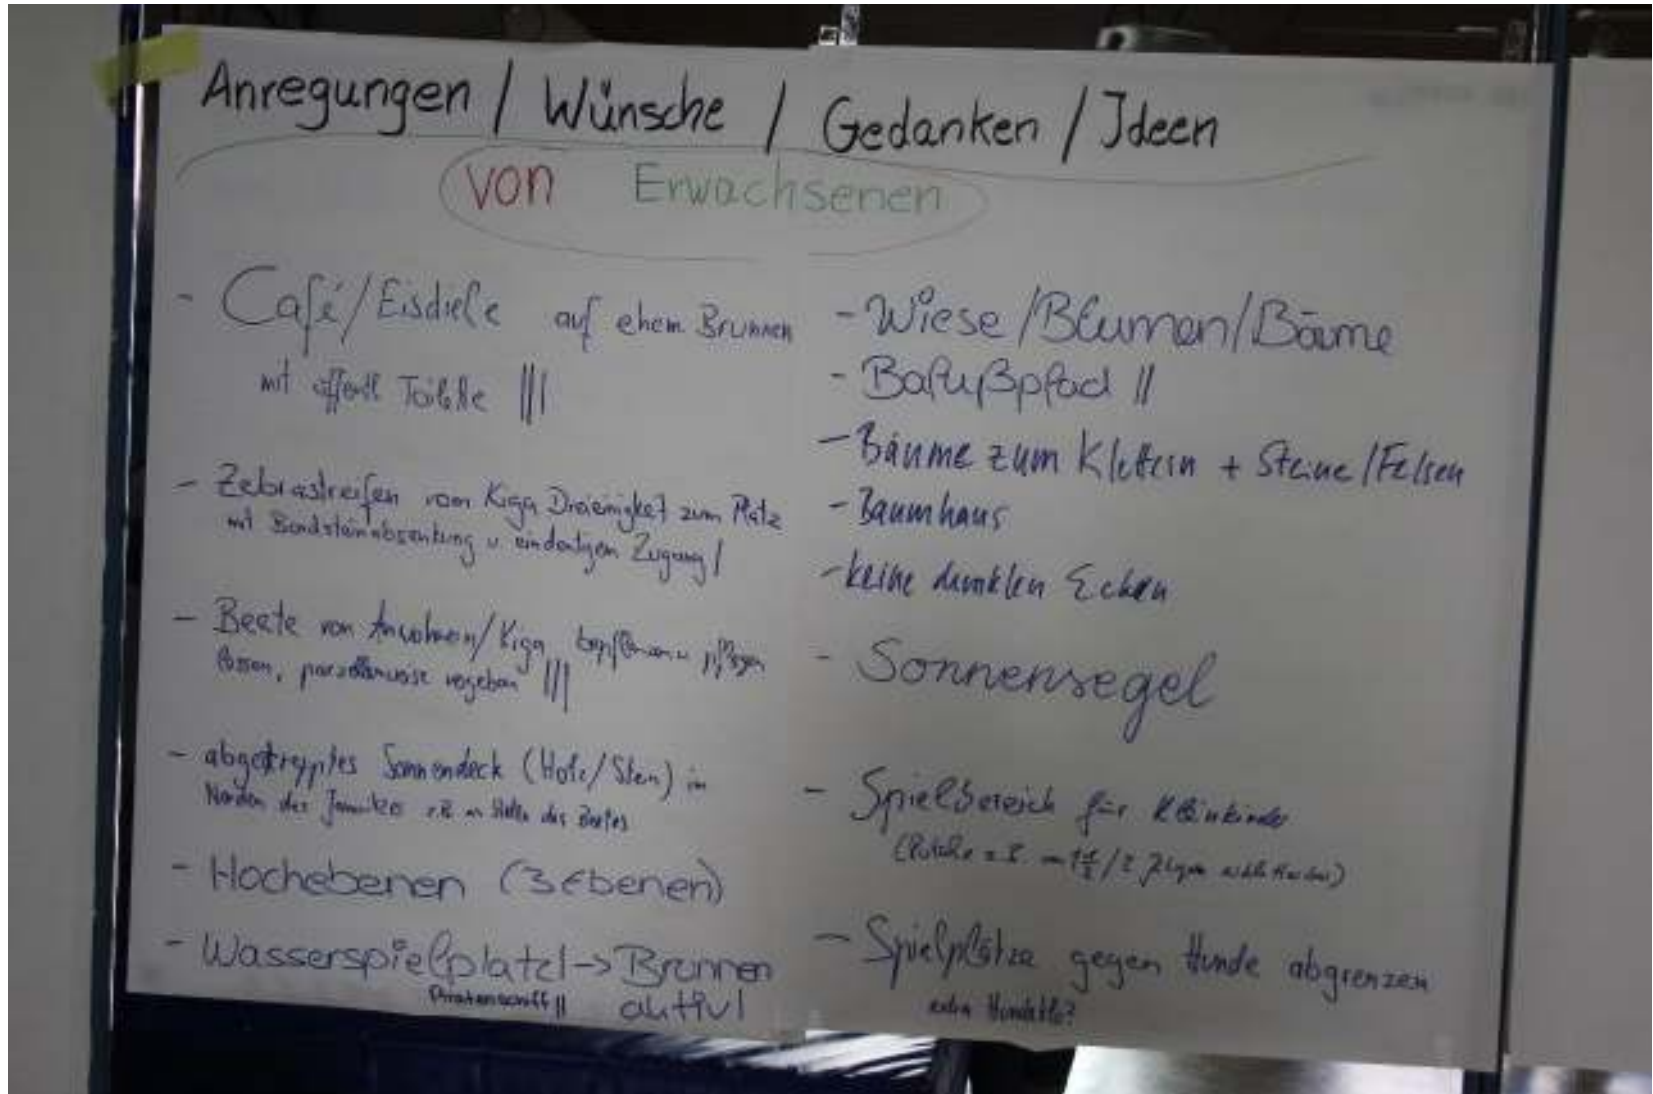 Anregungen / Wünsche / Gedanken / Ideen
von Erwachsenen
- Café/Eisdiele auf ehem Brunnen
mit öffentl Toilette |||
- Zebrastreifen vom Kiga Dreieinigkeit zum Platz
mit Bordsteinabsenkung u. eindeutigem Zugang |
- Beete von Anwohnern/Kiga bepflanzen u. pflegen
lassen, parzellenweise vergeben |||
- abgetrepptes Sonnendeck (Holz/Stein) im
Norden des z.B. an Stelle des Beetes
- Hochebenen (3 Ebenen)
- Wasserspielplatz |-> Brunnen
Piratenschiff || aktiv!
- Wiese/Blumen/Bäume
- Bafußpfad ||
- Bäume zum Klettern + Steine/Felsen
- Baumhaus
- keine dunklen Ecken
- Sonnensegel
- Spielbereich für Kleinkinder
- Spielplätze gegen Hunde abgrenzen